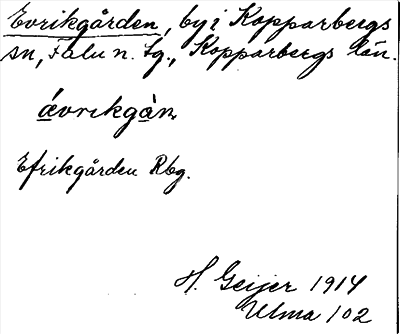 Evrikgården, by i Kopparbergs
sn, Falu n. tg., Kopparbergs län.
ávrikgàṇ
Efrikgården Rbg.
H. Geijer 1914
Ulma 102